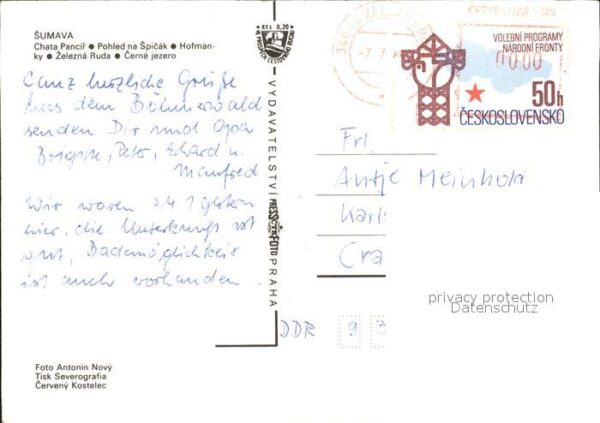 ŠUMAVA
Chata Pancíř ● Pohled na Špičák ● Hofman-
ky ● Železná Ruda ● Černé jezero
Ganz herzliche Grüße
aus dem Böhmerwald
senden Dir und Opa
Brigitte, Peter, Erhard u.
Manfred
Wir waren
hier, die Unterkunft ist
gut, Bademöglichkeit
ist auch vorhanden.
Foto Antonín Nový
Tisk Severografia
Červený Kostelec
KčS 0,20
VYDAVATELSTVÍ PRESSFOTO PRAHA
VOLEBNÍ PROGRAMY
NÁRODNÍ FRONTY
50h
ČESKOSLOVENSKO
Frl.
Antje Meinhold
Karl
Cra
privacy protection
Datenschutz
DDR 9 3